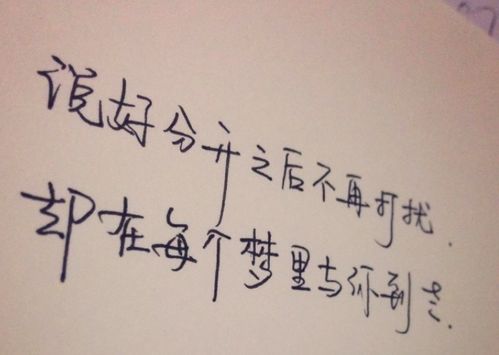 说好分开之后不再打扰.
却在每个梦里与你到老.